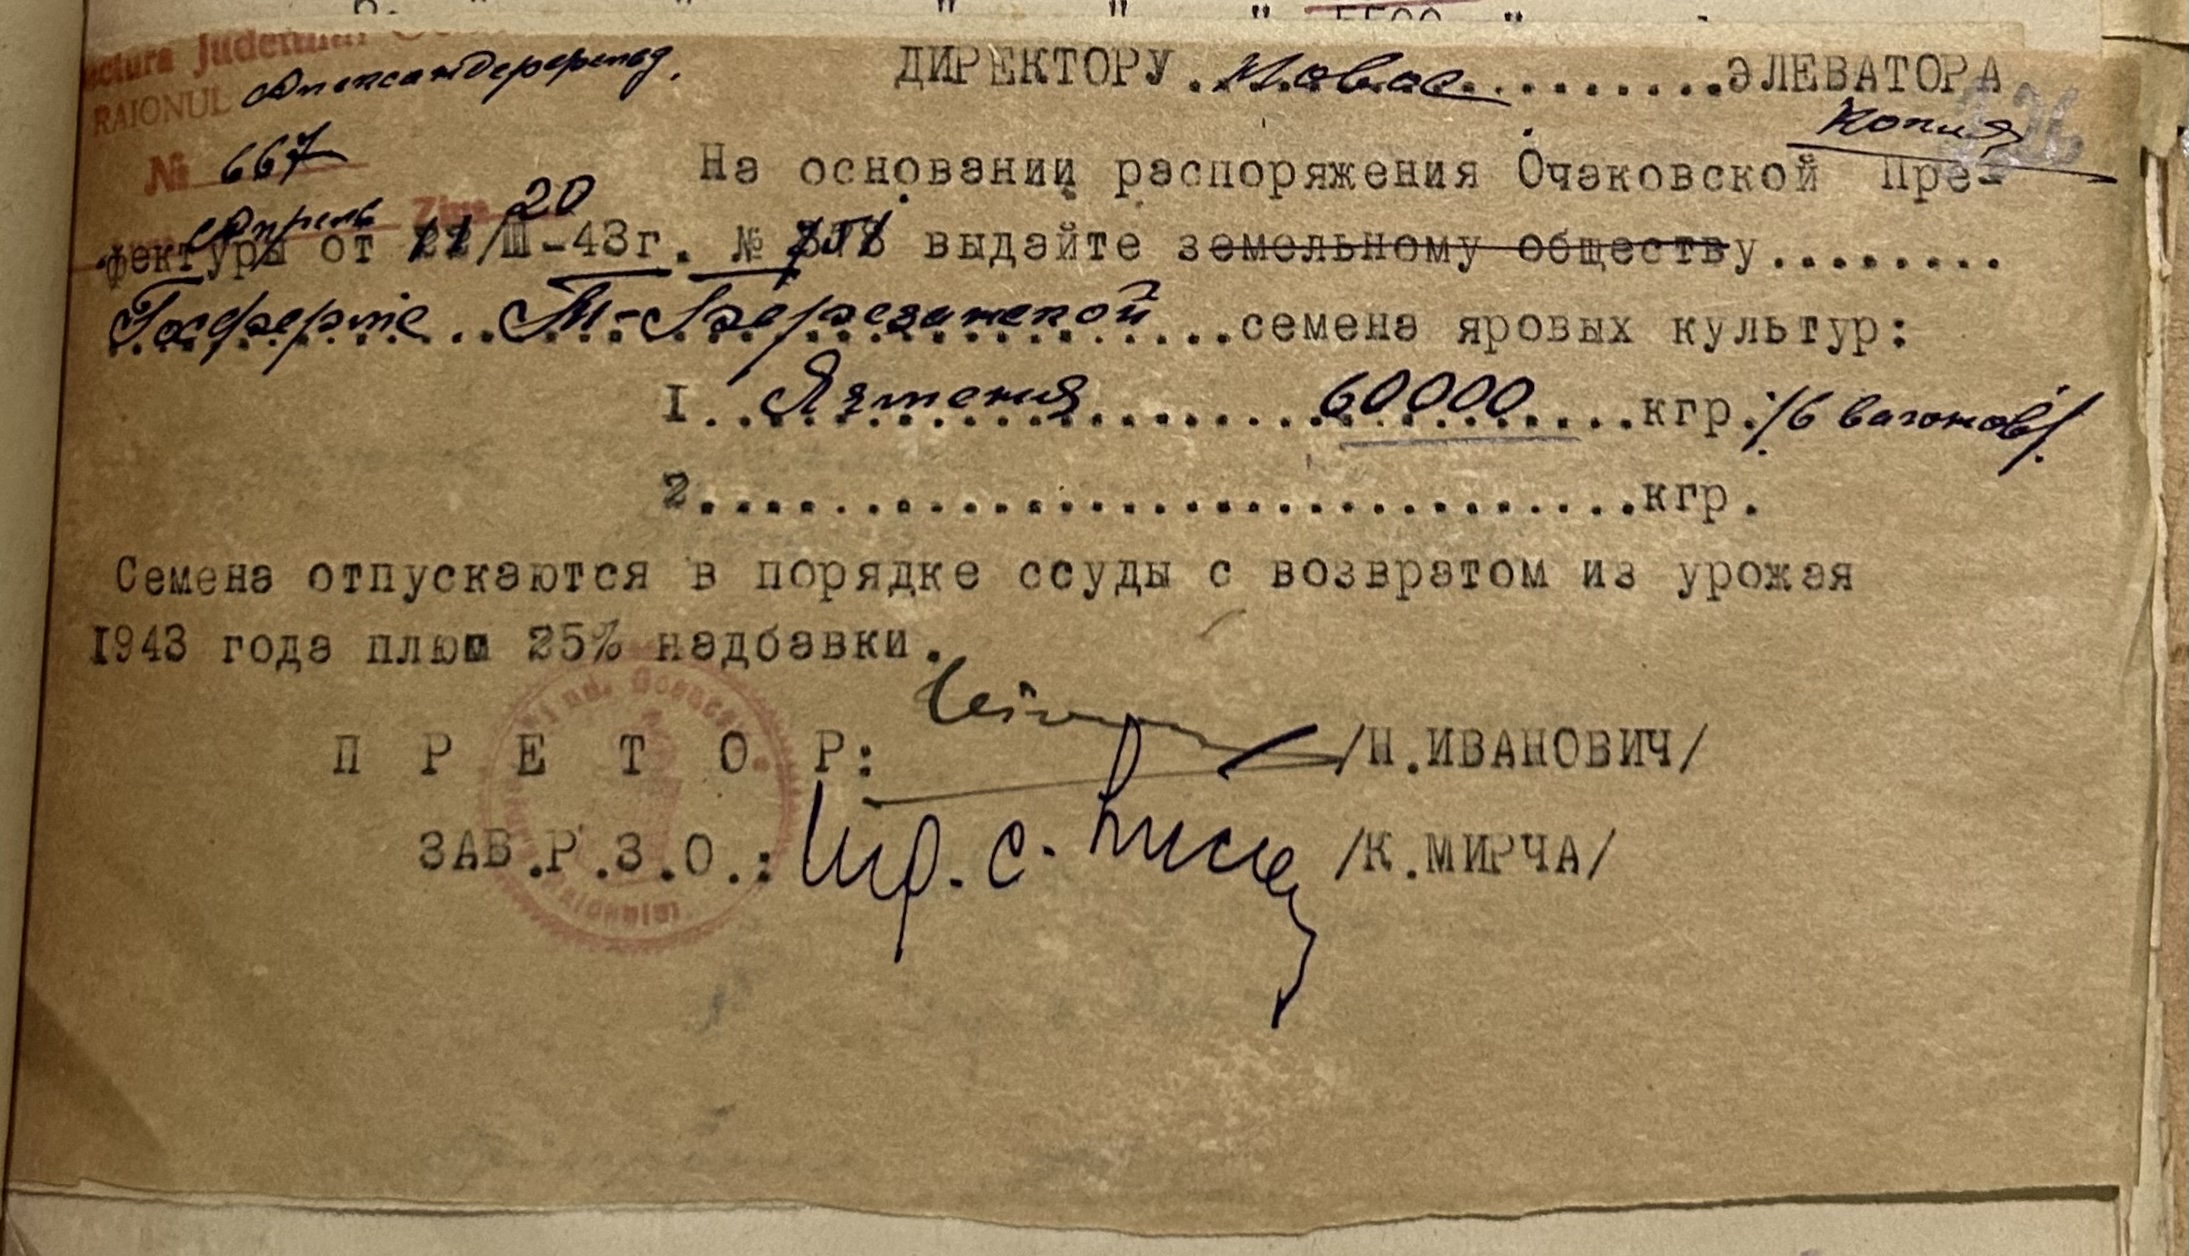 " " " 5500 "
Judetului
RAIONUL Александерфельд.
ДИРЕКТОРУ . ......... ЭЛЕВАТОРА
Копия
№ 667
Апрель Ziua 20
На основании распоряжения Очаковской Пре-
фектуры от /III-43г. № выдайте земельному обществу........
Госферме .. Т-Березанской ....семена яровых культур:
I.. Ячменя ....... 60000 ....кгр. /6 вагонов/
2.................................кгр.
Семена отпускаются в порядке ссуды с возвратом из урожая
1943 года плюш 25% надбавки.
П Р Е Т О Р: /Н.ИВАНОВИЧ/
ЗАВ.Р.З.О.: /К.МИРЧА/